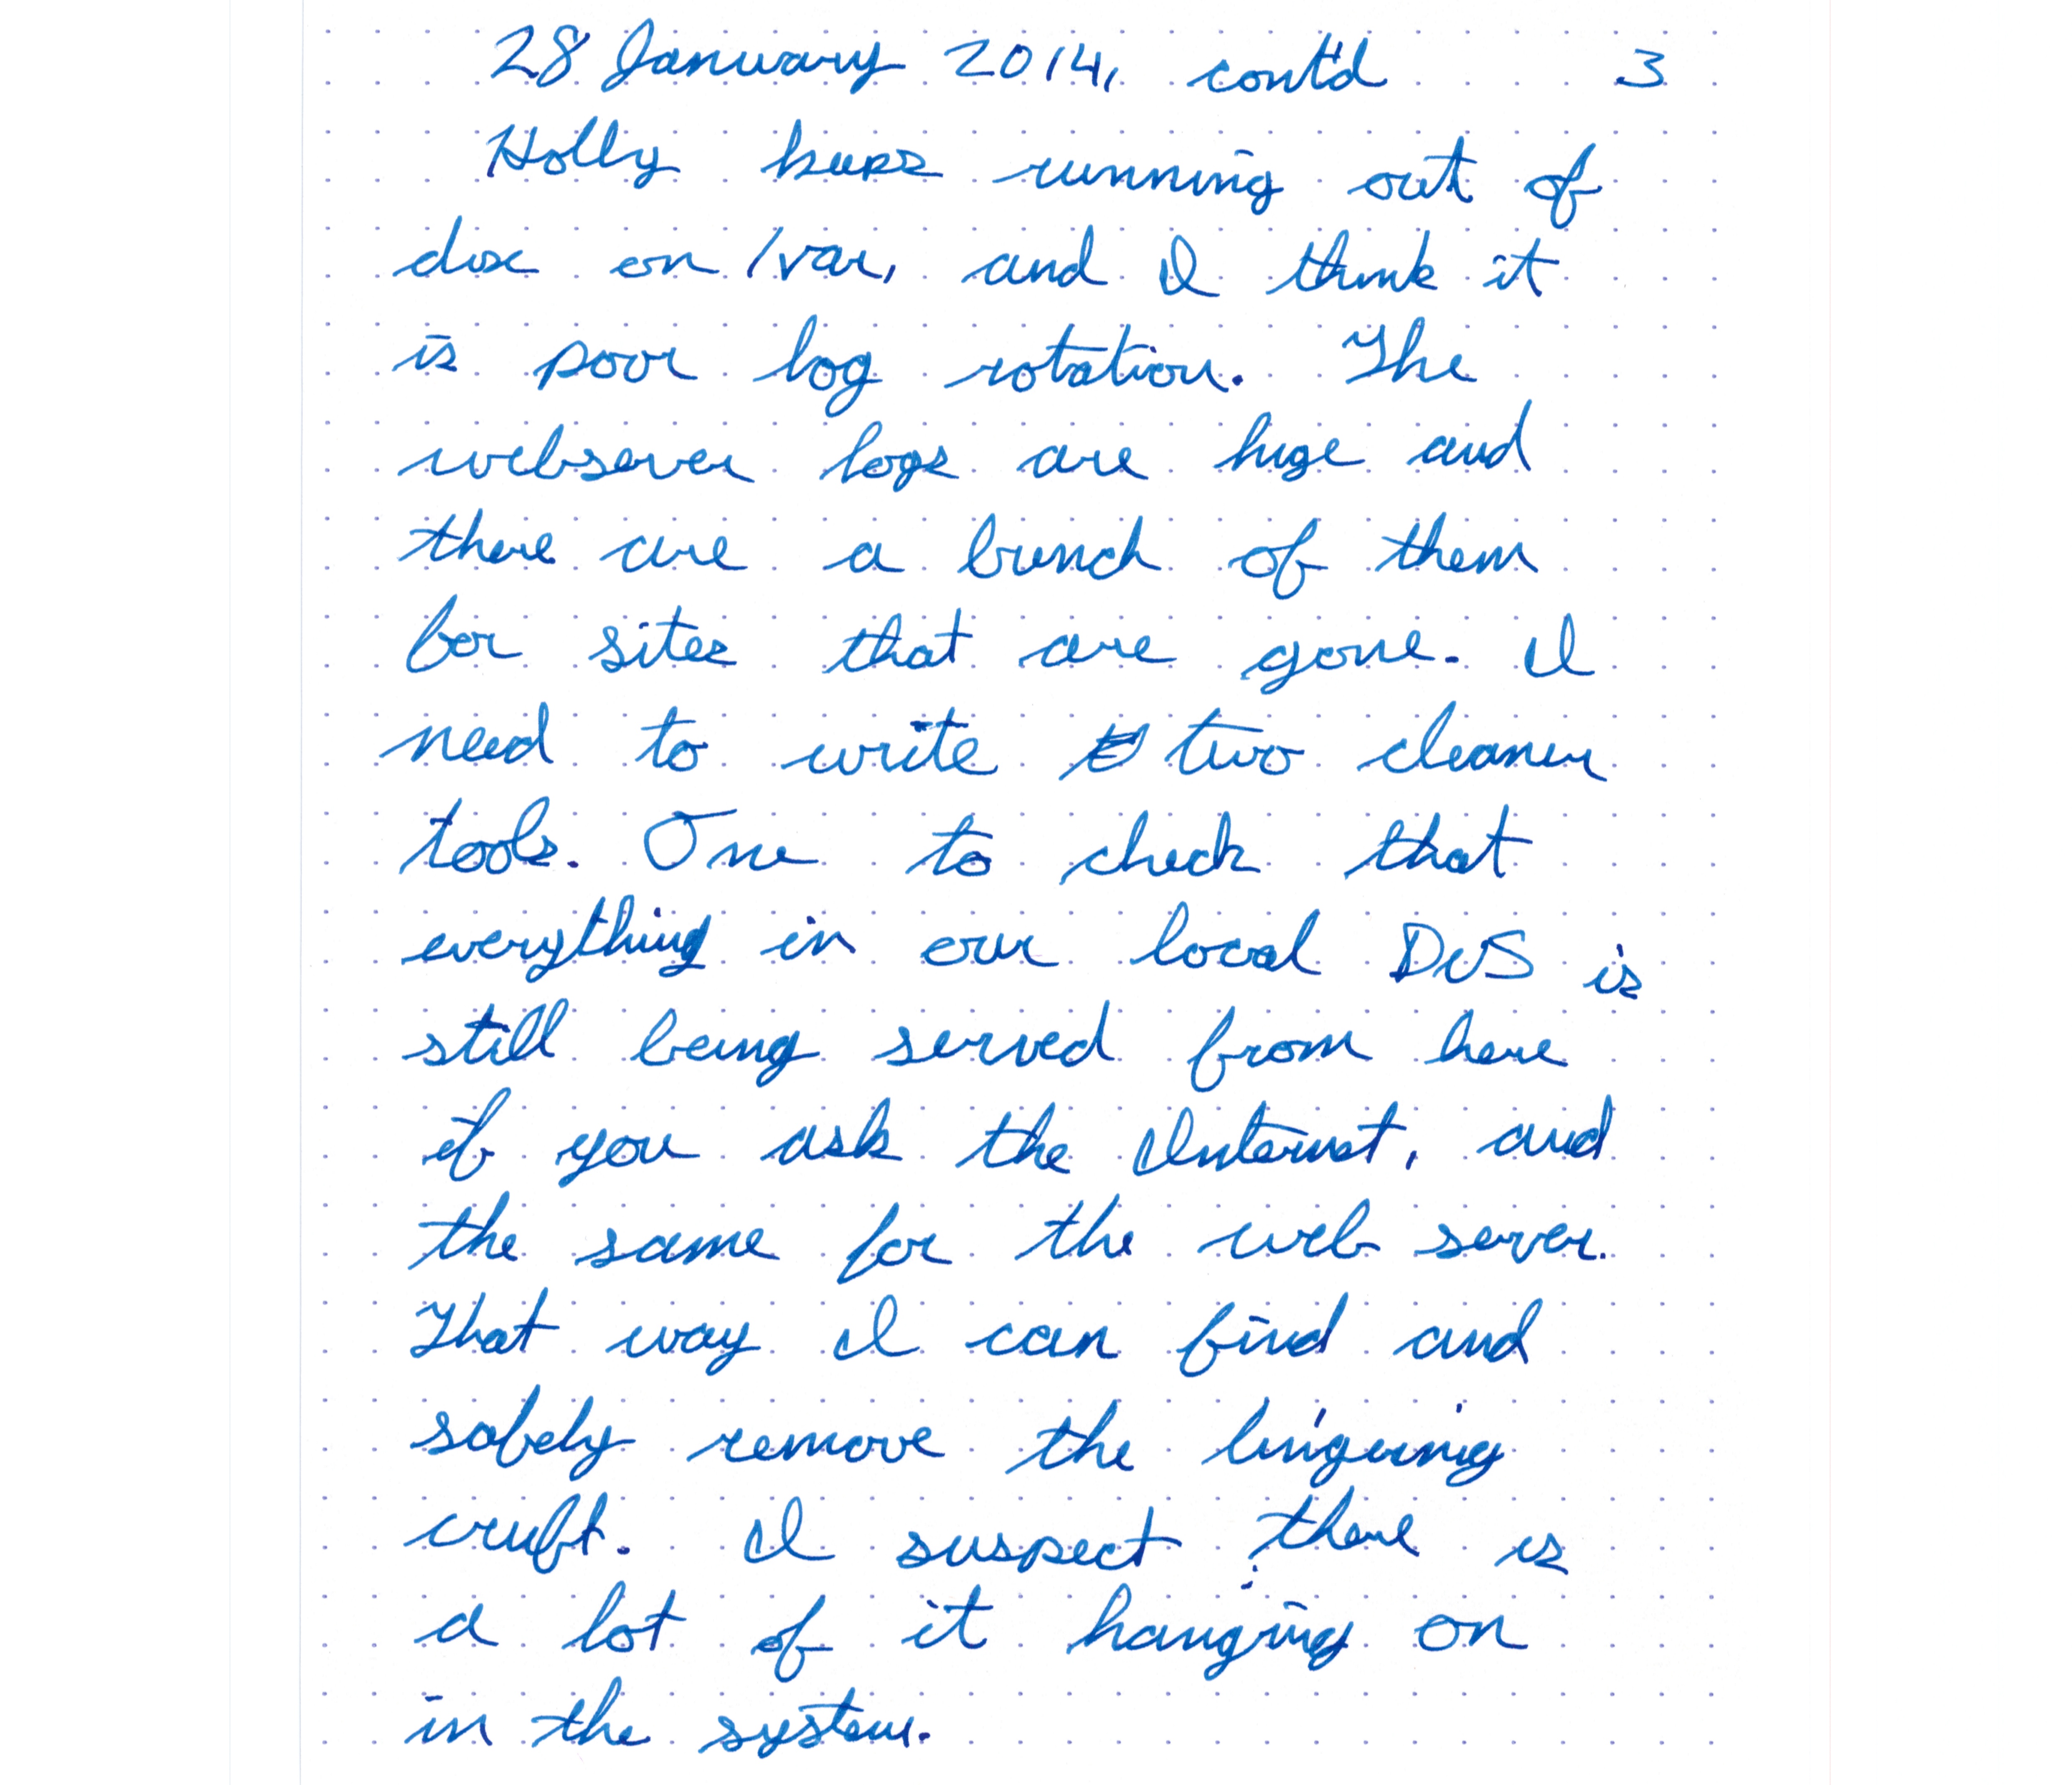 28 January 2014, cont'd 3
Holly keeps running out of
disc on /var, and I think it
is poor log rotation. The
webserver logs are huge and
there are a bunch of them
for sites that are gone. I
need to write two cleaner
tools. One to check that
everything in our local DNS is
still being served from here
if you ask the Internet, and
the same for the web server.
That way I can find and
safely remove the lingering
cruft. I suspect there is
a lot of it hanging on
in the system.